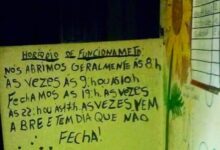 HORÁRIO DE FUNCIONAMETO
NÓS ABRIMOS GERALMENTE ÀS 8h
AS VEZES ÀS 9, hOU ÀS 10h
FECHAMOS AS 19h. AS VEZES
ÀS 22:hOU 17h AS VEZES VEM
A BRE E TEM DIA QUE NÃO
FECHA!